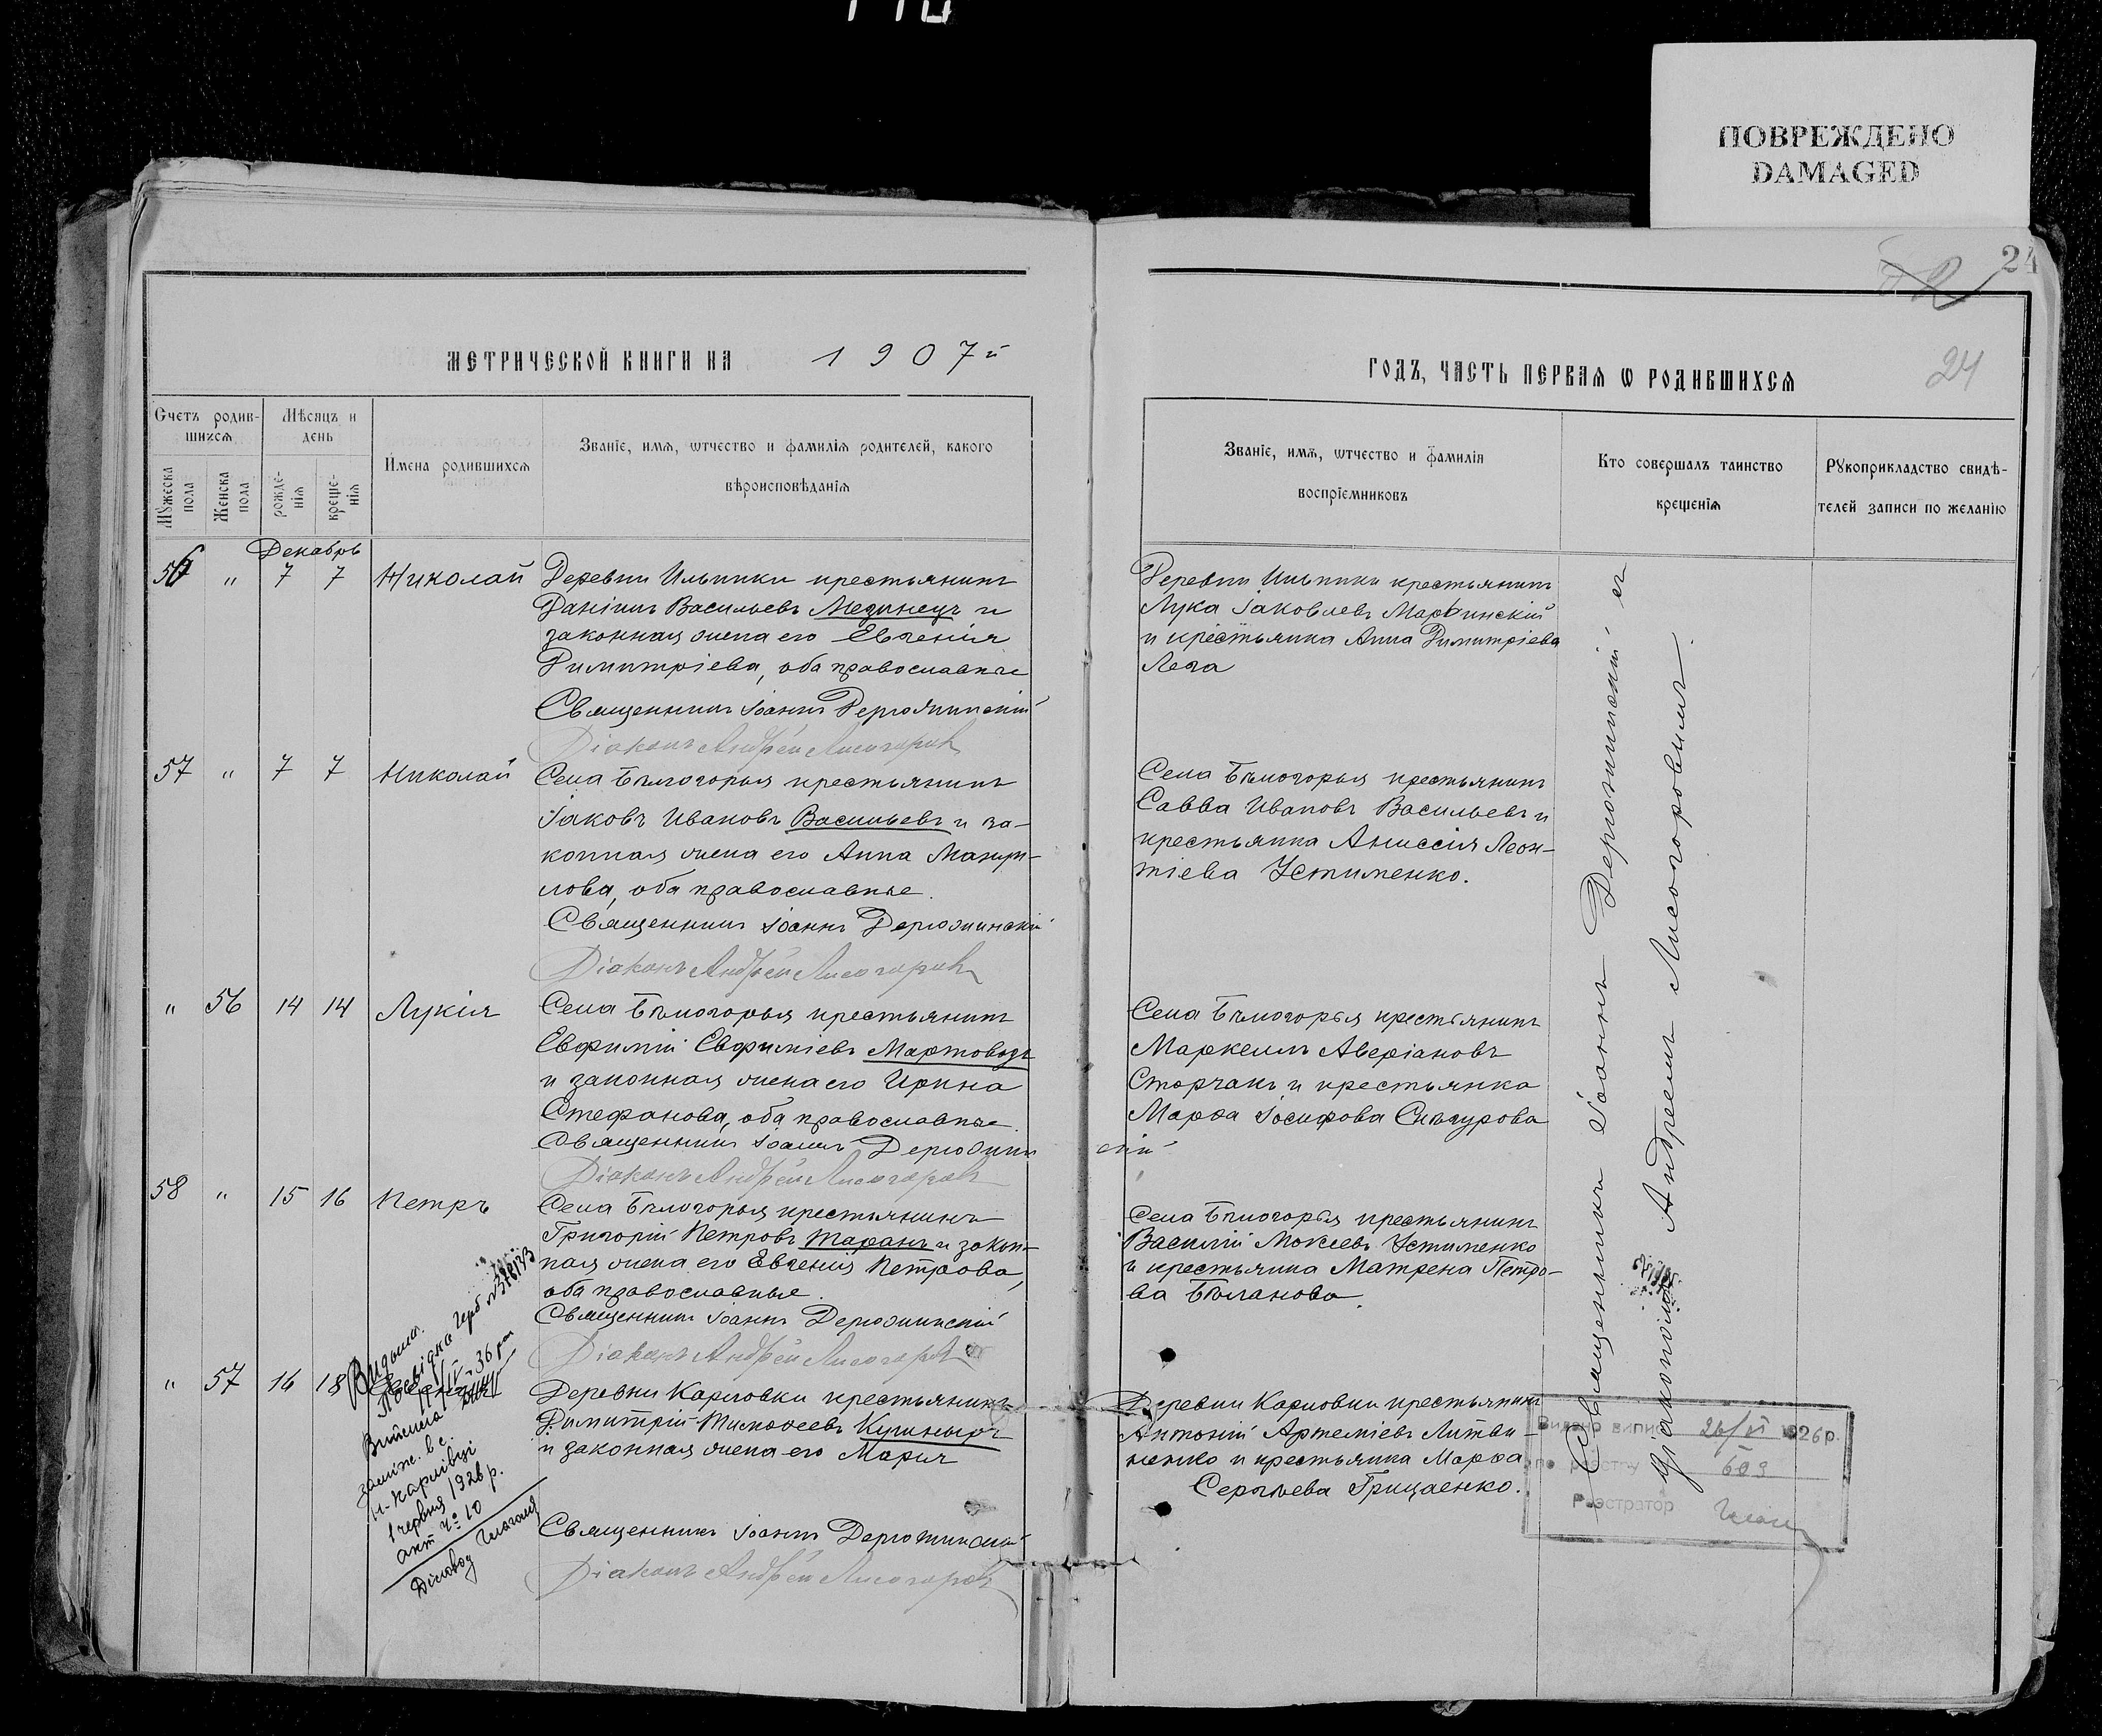 ПОВРЕЖДЕНО
DAMAGED
24
МЕТРИЧЕСКОЙ КНИГИ НА 1907й
ГОДЪ, ЧАСТЬ ПЕРВАѦ Ѡ РОДИВШИХСѦ
24
Счетъ родив-
шихсѧ
Мѣсѧцъ и
день
Имена родившихсѧ
Званїе, имѧ, ѡтчество и фамилїѧ родителей, какого
вѣроисповѣданїѧ
Мꙋжеска
пола
Женска
пола
рожде-
нїѧ
креще-
нїѧ
Званїе, имѧ, ѡтчество и фамилїѧ
воспрїемниковъ
Кто совершалъ таинство
крещенїѧ
Рꙋкоприкладство свидѣ-
телей записи по желанїю
Декабрь
56 " 7 7 Николай
Деревни Ильинки крестьянинъ
Даніилъ Васильевъ Мединецъ и
законная жена его Евгенія
Димитріева, оба православные
Священникъ Іоаннъ Дерюжинскій
Діаконъ Андрей Лисогоровъ
Деревни Ильинки крестьянинъ
Лука Іаковлевъ
и крестьянка Анна Димитріева
Лега
57 " 7 7 Николай
Села Бѣлогорья крестьянинъ
Іаковъ Ивановъ Васильевъ и за-
конная жена его Анна
оба православные.
Священникъ Іоаннъ Дерюжинскій
Діаконъ Андрей Лисогоровъ
Села Бѣлогорья крестьянинъ
Савва Ивановъ Васильевъ и
крестьянка Аниссія Леон-
тіева Устименко.
" 56 14 14 Лукія
Села Бѣлогорья крестьянинъ
Евфимій Евфиміевъ Мартоводъ
и законная жена его Ирина
Стефанова, оба православные.
Священникъ Іоаннъ Дерюжинскій
Діаконъ Андрей Лисогоровъ
Села Бѣлогорья крестьянинъ
Маркеллъ Аверіановъ
Сторчакъ и крестьянка
Марѳа Іосифова
58 " 15 16 Петръ
Села Бѣлогорья крестьянинъ
Григорій Петровъ Таранъ и закон-
ная жена его Евгенія Петрова,
оба православные.
Священникъ Іоаннъ Дерюжинскій
Діаконъ Андрей Лисогоровъ
Села Бѣлогорья крестьянинъ
Василій Мокіевъ Устименко
и крестьянка Матрена Петро-
ва Бѣланова.
" 57 16 18
Деревни Карловки крестьянинъ
Димитрій Тимоѳеевъ
и законная жена его Марія
Священникъ Іоаннъ Дерюжинскій
Діаконъ Андрей Лисогоровъ
Деревни Карловки крестьянинъ
Антоній Артеміевъ Литви-
ненко и крестьянка Марѳа
Сергѣева Грицаенко.
Видана
36 р
Вийшла
заміж. в с.
Н-Карлівці
1 червня 1926 р.
акт № 10
Діловод
Священникъ Іоаннъ Дерюжинскій съ
діакономъ Андреемъ Лисогоровымъ.
Видано випис 26/VI 1926 р.
по реєстру 609
Реєстратор